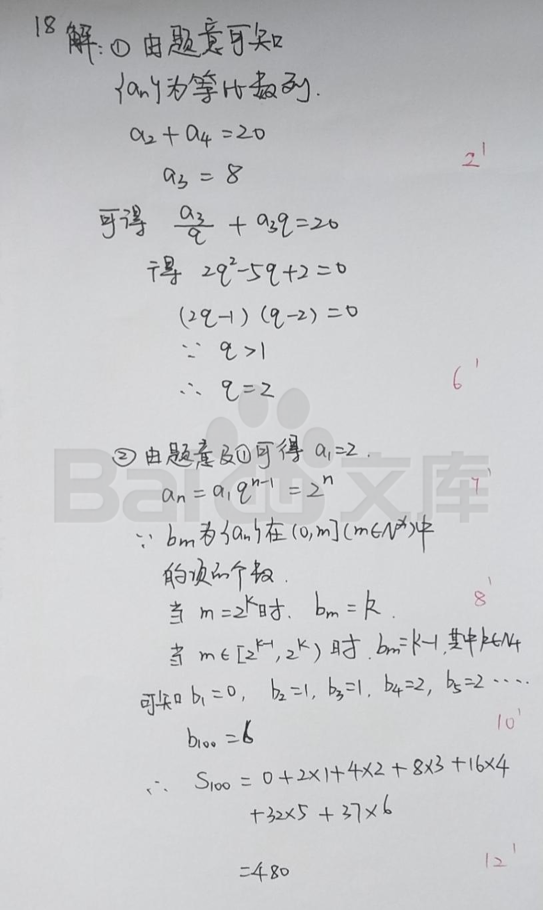 18 解:① 由题意可知
{an}为等比数列.
a₂+a₄=20
2'
a₃=8
可得 a₃/q + a₃q=20
得 2q²-5q+2=0
(2q-1)(q-2)=0
∵ q>1
∴ q=2
6'
② 由题意及①可得 a₁=2.
an=a₁qⁿ⁻¹=2ⁿ
7'
Bai 文库
∵ bm为{an}在(0,m](m∈N*)中
的项的个数.
当 m=2ᵏ时. bm=k.
8'
当 m∈[2ᵏ⁻¹,2ᵏ)时.bm=k-1,其中k∈N+
可知b₁=0, b₂=1, b₃=1, b₄=2, b₅=2 ·····
10'
b₁₀₀=6
∴ S₁₀₀=0+2×1+4×2+8×3+16×4
+32×5+37×6
=480
12'